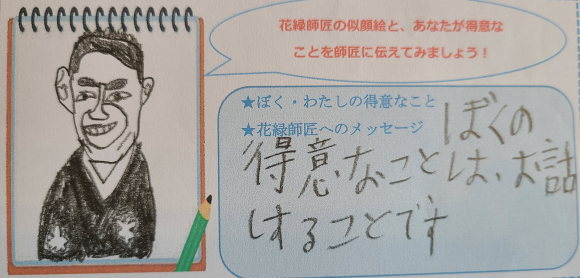 花緑師匠の似顔絵と、あなたが得意な
ことを師匠に伝えてみましょう！
★ぼく・わたしの得意なこと
★花緑師匠へのメッセージ
ぼくの
得意なことは、お話
しすることです